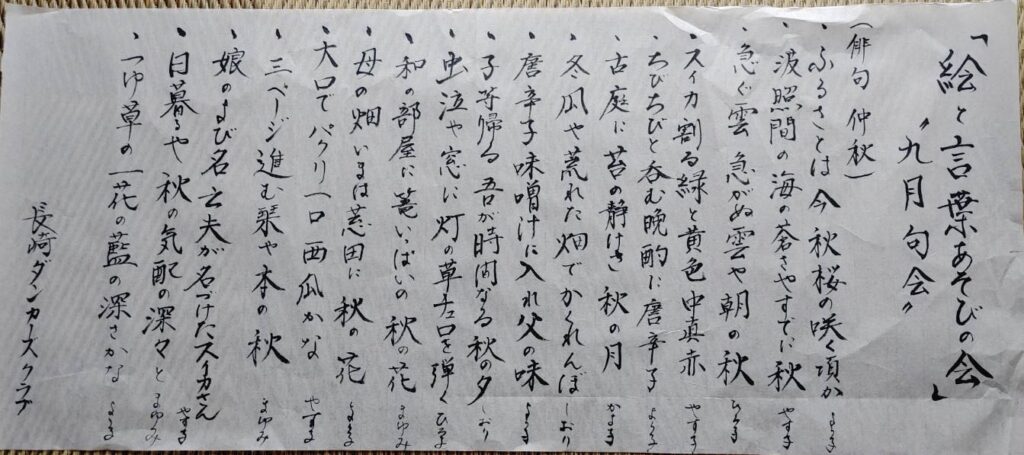 「絵と言葉あそびの会」
〝九月句会〟
（俳句 仲秋）
・ふるさとは今秋桜の咲く頃か
・波照間の海の蒼さやすでに秋 やすき
・急ぐ雲 急がぬ雲や朝の秋
・スイカ割る緑と黄色中真赤 やすき
・ちびちびと呑む晩酌に唐辛子
・古庭に苔の静けさ秋の月
・冬瓜や荒れた畑でかくれんぼ しおり
・唐辛子味噌汁に入れ父の味
・子等帰る吾が時間なる秋の夕 しおり
・虫泣や窓に灯の草
・和の部屋に籠いっぱいの秋の花 まゆみ
・母の畑いまは荒田に秋の花
・大口でパクリ一口西瓜かな やすき
・三ページ進む栞や本の秋 まゆみ
・娘のよび名亡夫が名づけたスイカさん やすき
・日暮るや秋の気配の深々と まゆみ
・つゆ草の一花の藍の深さかな
長崎ダンカースクラブ